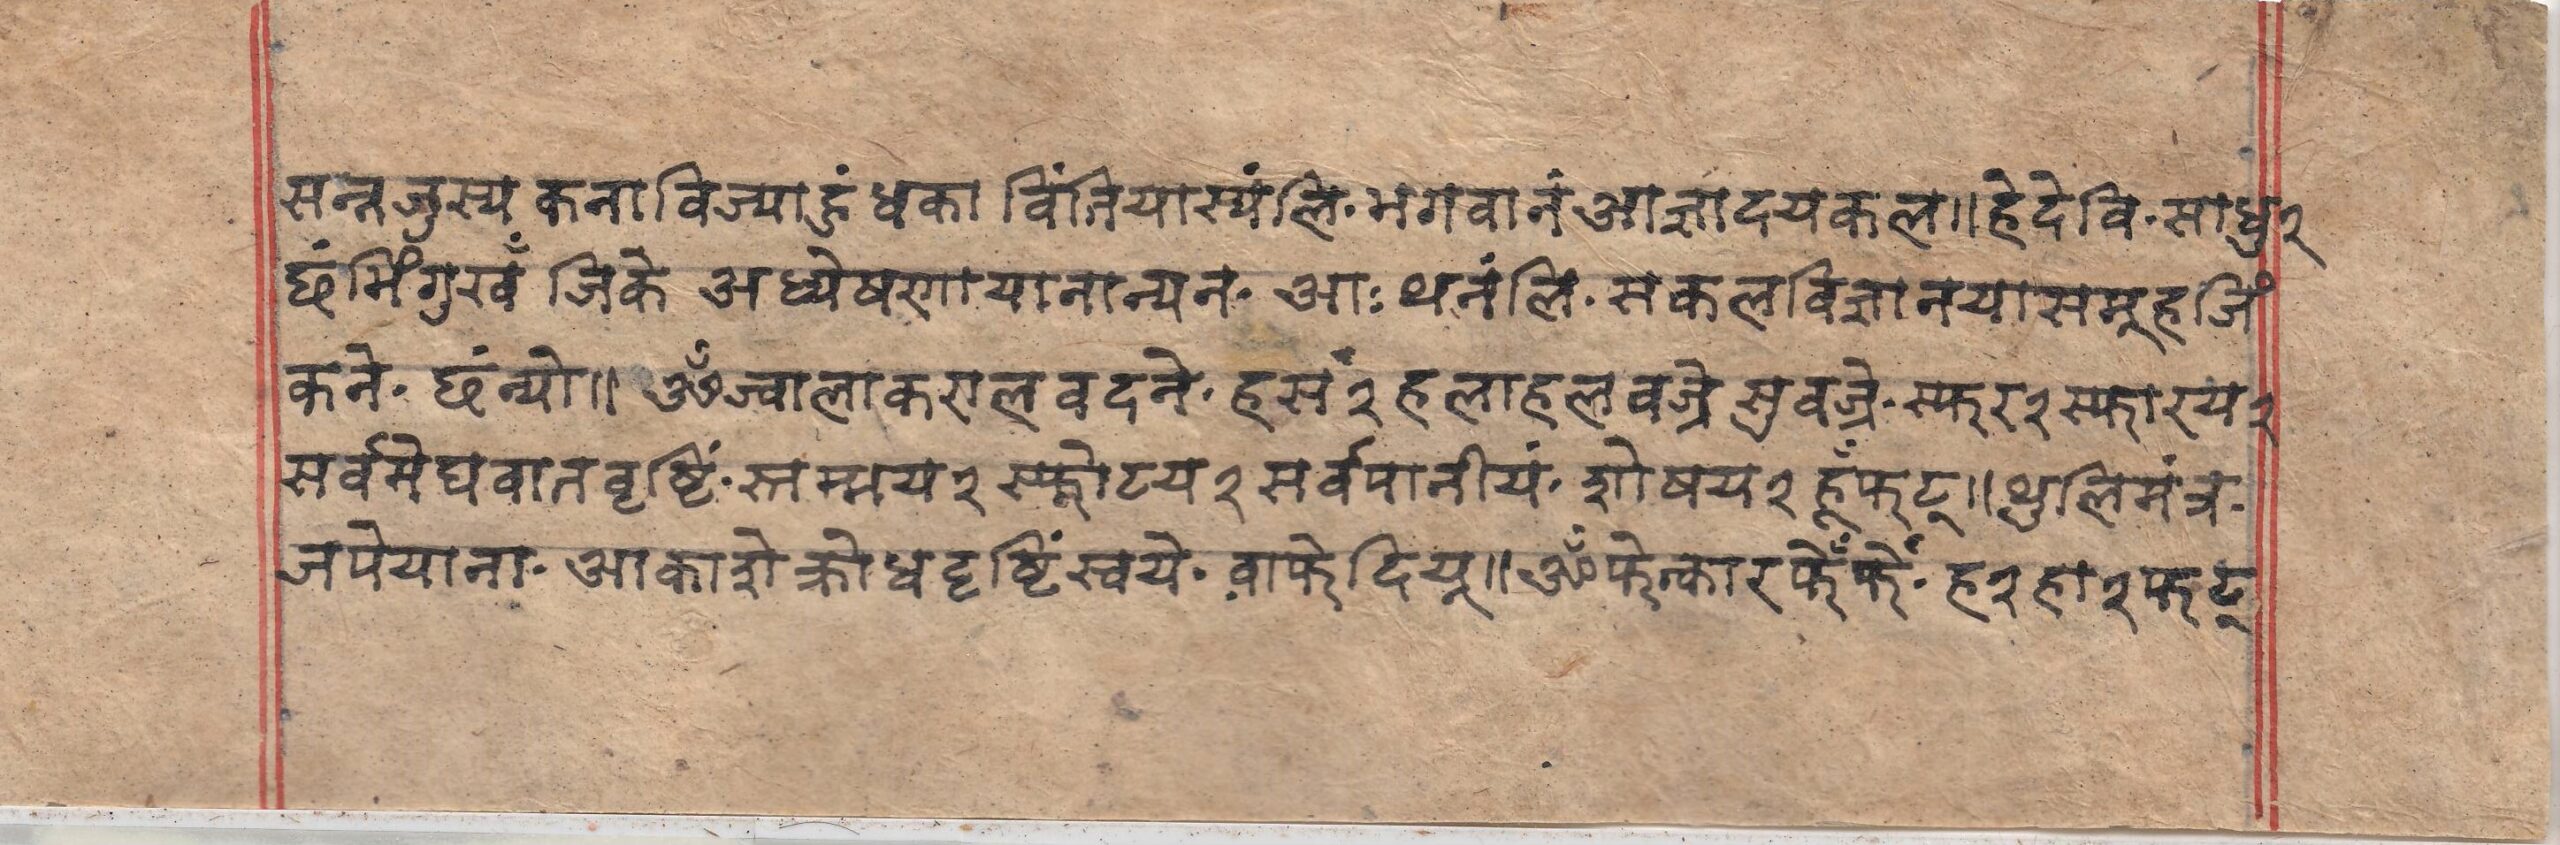 सन्नजुस्य कना विज्याहुं धका विंतियास्यंलि॰ भगवानं आज्ञादयकल॥ हे देवि॰ साधु२
छं मिंगुखँ जिके अध्येषणायानान्यन॰ आः थनंलि॰ सकलविज्ञानयासमूह जिं
कने॰ छं न्यो॥ ॐ ज्वालाकरालवदने॰ हसं२ हलाहलवज्रे सुवज्रे॰ स्फर२ स्फारय२
सर्वमेघवातवृष्टिं॰ स्तम्भय२ स्फोटय२ सर्वपानीयं॰ शोषय२ हूँफट्॥ थुलिमंत्र॰
जपेयाना॰ आकाशे क्रोधदृष्टिं स्वये॰ वाफे दियू॥ ॐ फेत्कार फेँ फेँ॰ ह२ हा२ फट्